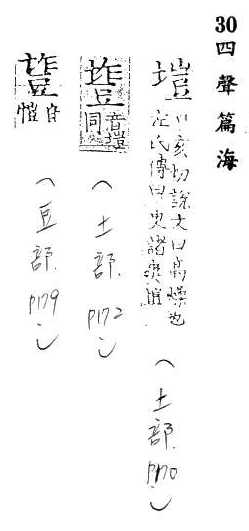 30四聲篇海
塏口亥切說文曰高燥也
左氏傳曰更諸爽塏
(土部 P170)
音塏
同
(土部 P172)
音
愷
(豆部 P179)